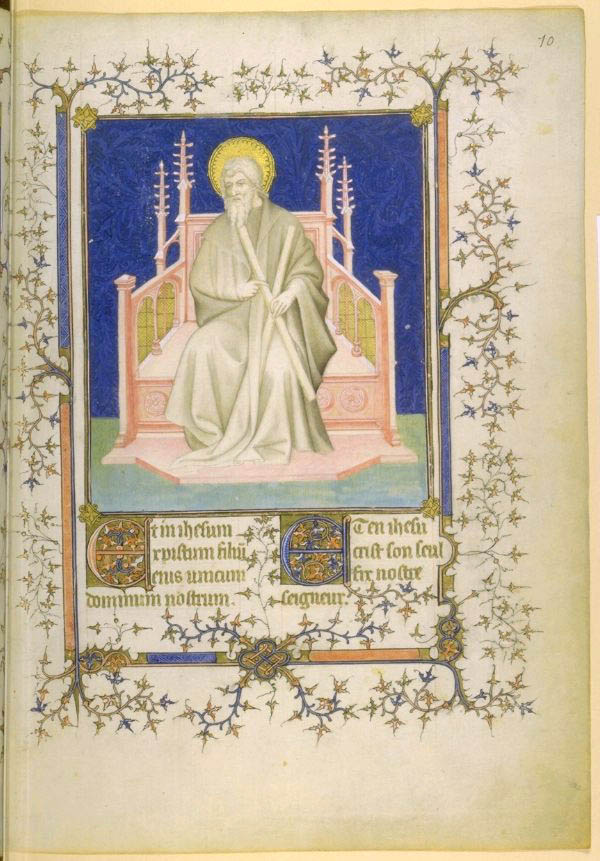 10
Et in ihesum
xpistum filiū
eius unicum
dominum nostrum.
Et en ihesu
crist son seul
fix nostre
seigneur.